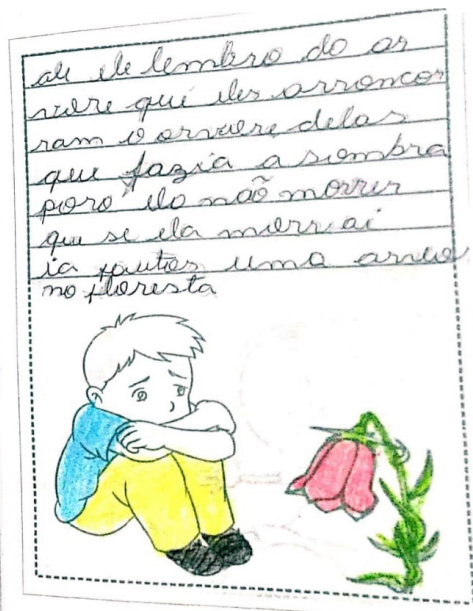 ale ele lembro do ar
vore que eles arroncor
ram o arvore delas
que fazia a sombra
poro ela não morrer
que se ela morrer ai
ia fautos uma arvo
no floresta